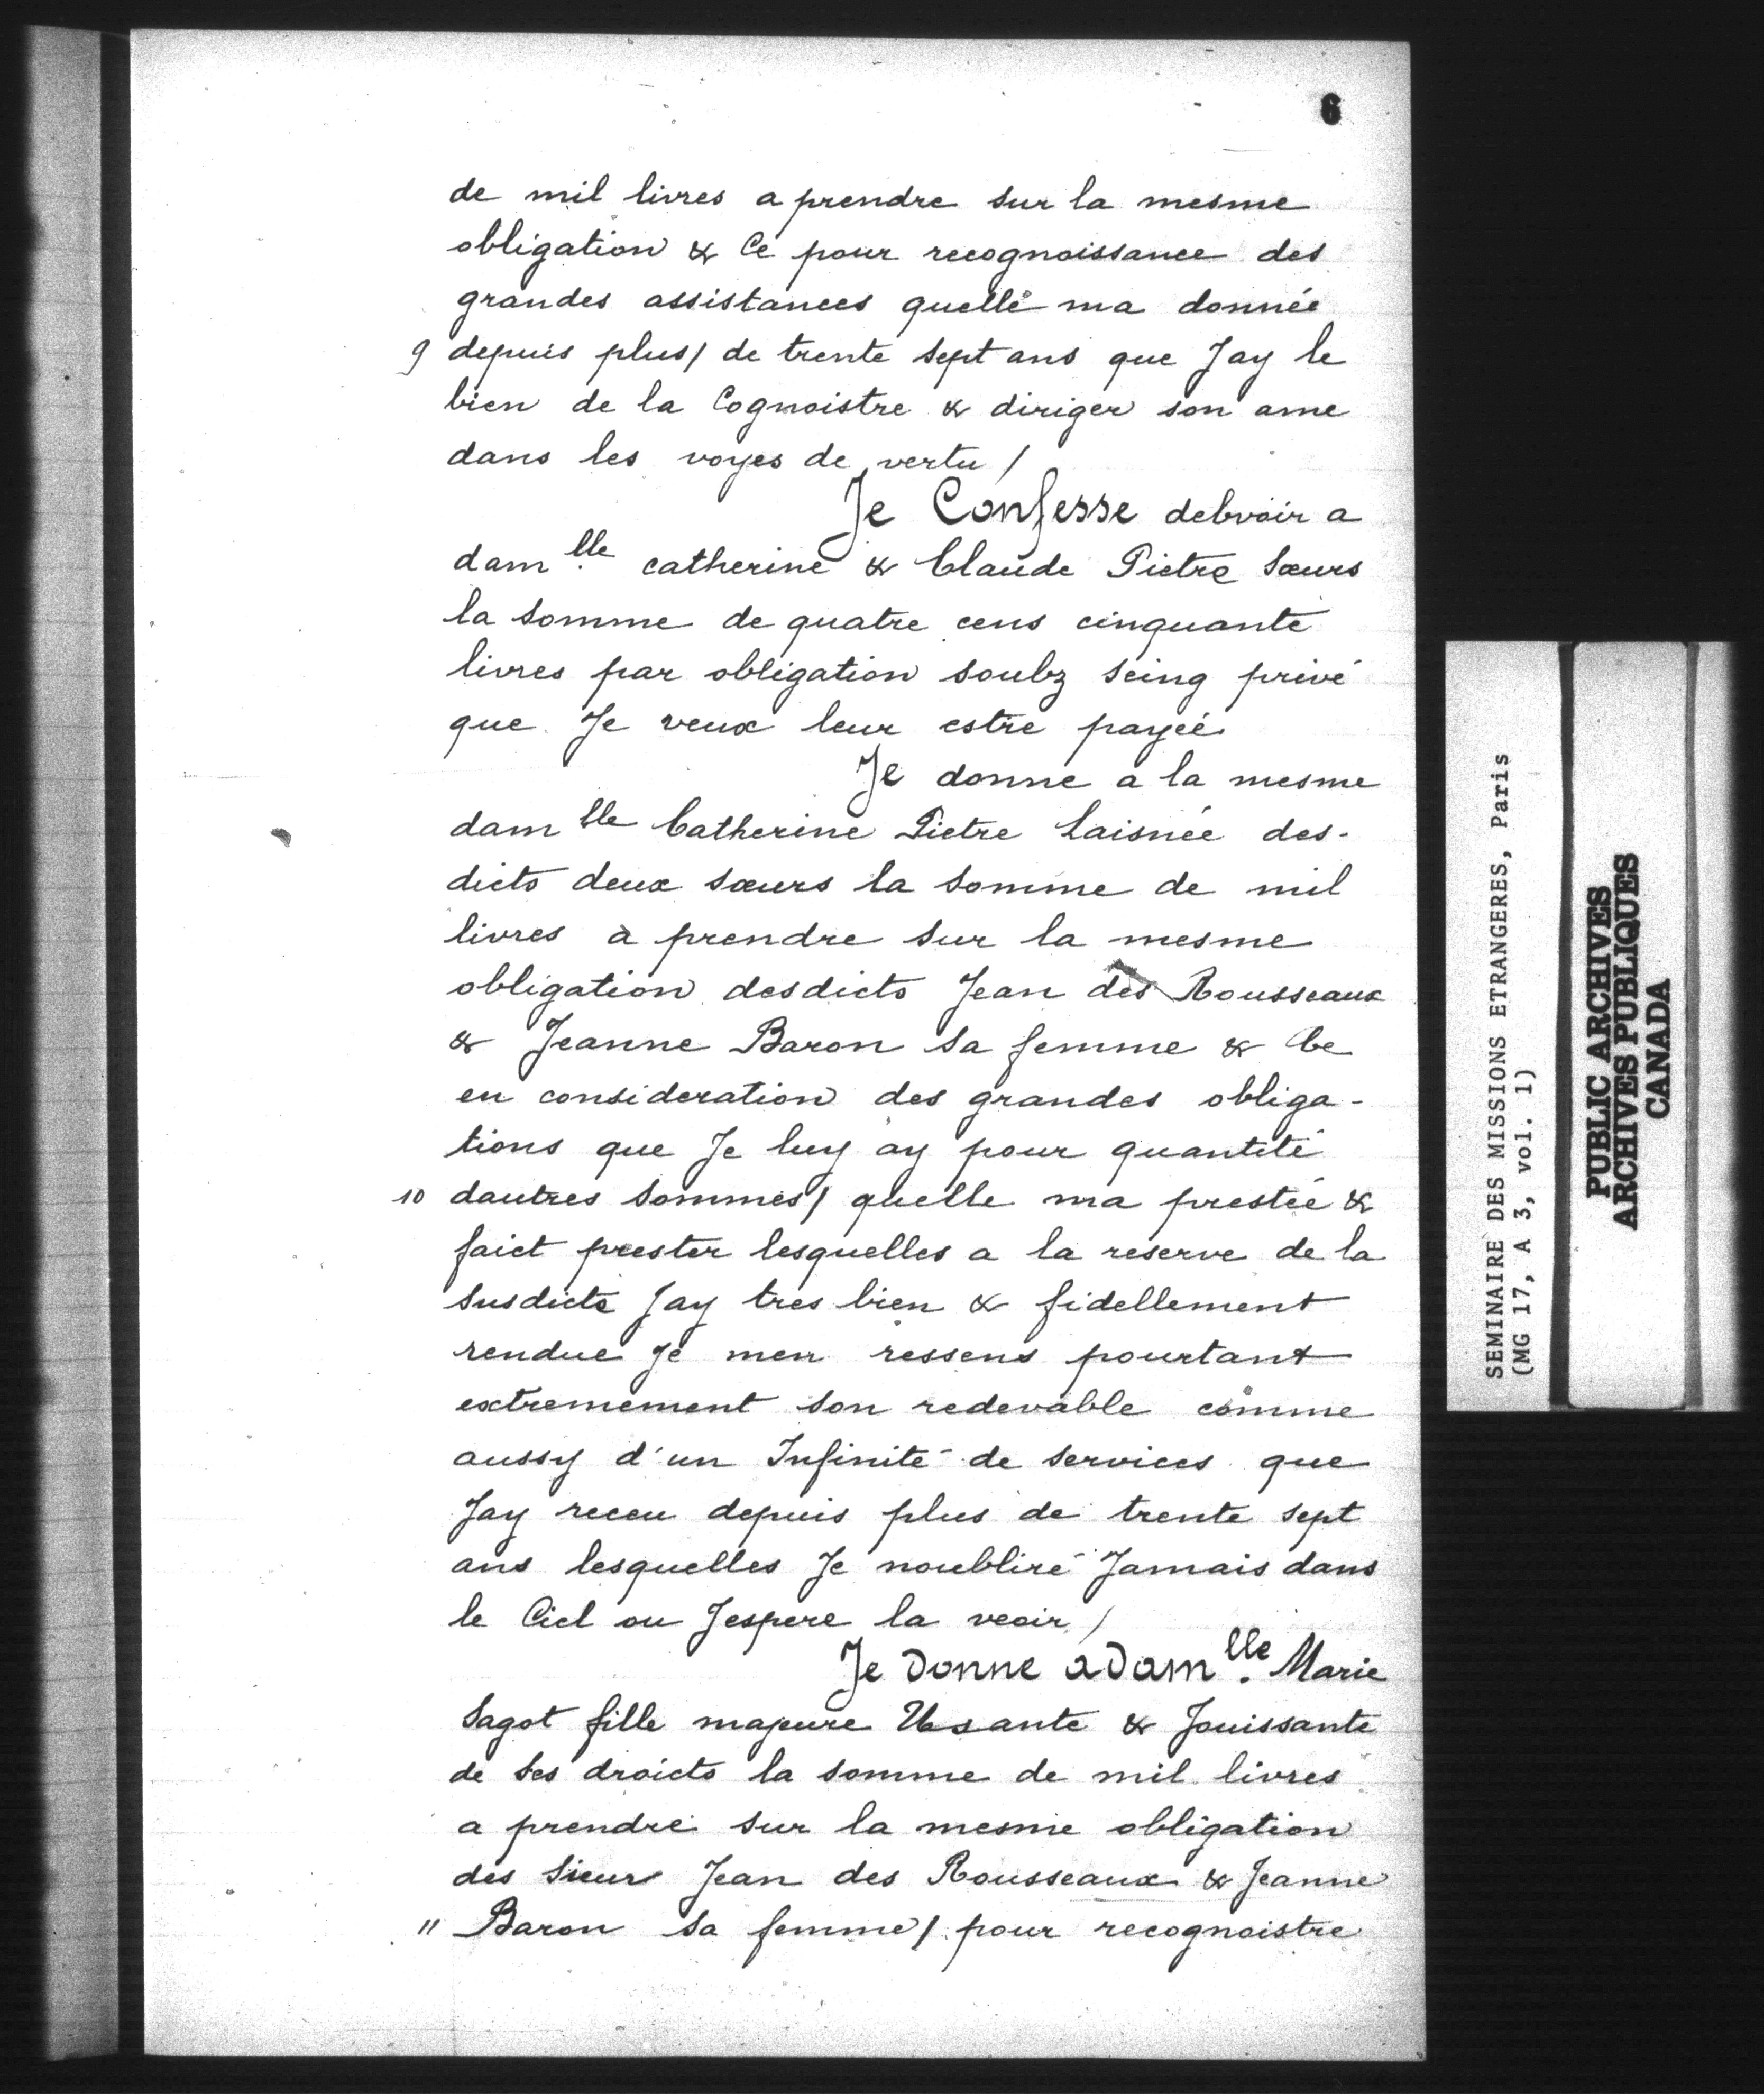 6
de mil livres a prendre sur la mesme
obligation & Ce pour recognoissance des
grandes assistances quelle ma donnée
9 depuis plus/ de trente sept ans que Jay le
bien de la Cognoistre & diriger son ame
dans les voyes de vertu /
Je Confesse debvoir a
dam.lle catherine & Claude Pietre Sœurs
la somme de quatre cens cinquante
livres par obligation soubz seing privé
que Je veux leur estre payée.
Je donne a la mesme
damlle Catherine Pietre Laisnée des-
dicts deux sœurs la somme de mil
livres à prendre sur la mesme
obligation desdicts Jean des Rousseaux
& Jeanne Baron sa femme & Ce
en consideration des grandes obliga-
tions que Je luy ay pour quantité
10 dautres sommes/ quelle ma prestée &
faict prester lesquelles a la reserve de la
susdicte Jay tres bien & fidellement
rendue Je men ressens pourtant
extremement son redevable comme
aussy d'un Infinité de services que
Jay receu depuis plus de trente sept
ans lesquelles Je noubliré Jamais dans
le Ciel ou Jespere la veoir /
Je donne a dam.lle Marie
Sagot fille majeure Usante & Jouissante
de ses droicts la somme de mil livres
a prendre sur la mesme obligation
des Sieur Jean des Rousseaux & Jeanne
11 Baron sa femme/ pour recognoistre
SEMINAIRE DES MISSIONS ETRANGERES, Paris
(MG 17, A 3, vol. 1)
PUBLIC ARCHIVES
ARCHIVES PUBLIQUES
CANADA